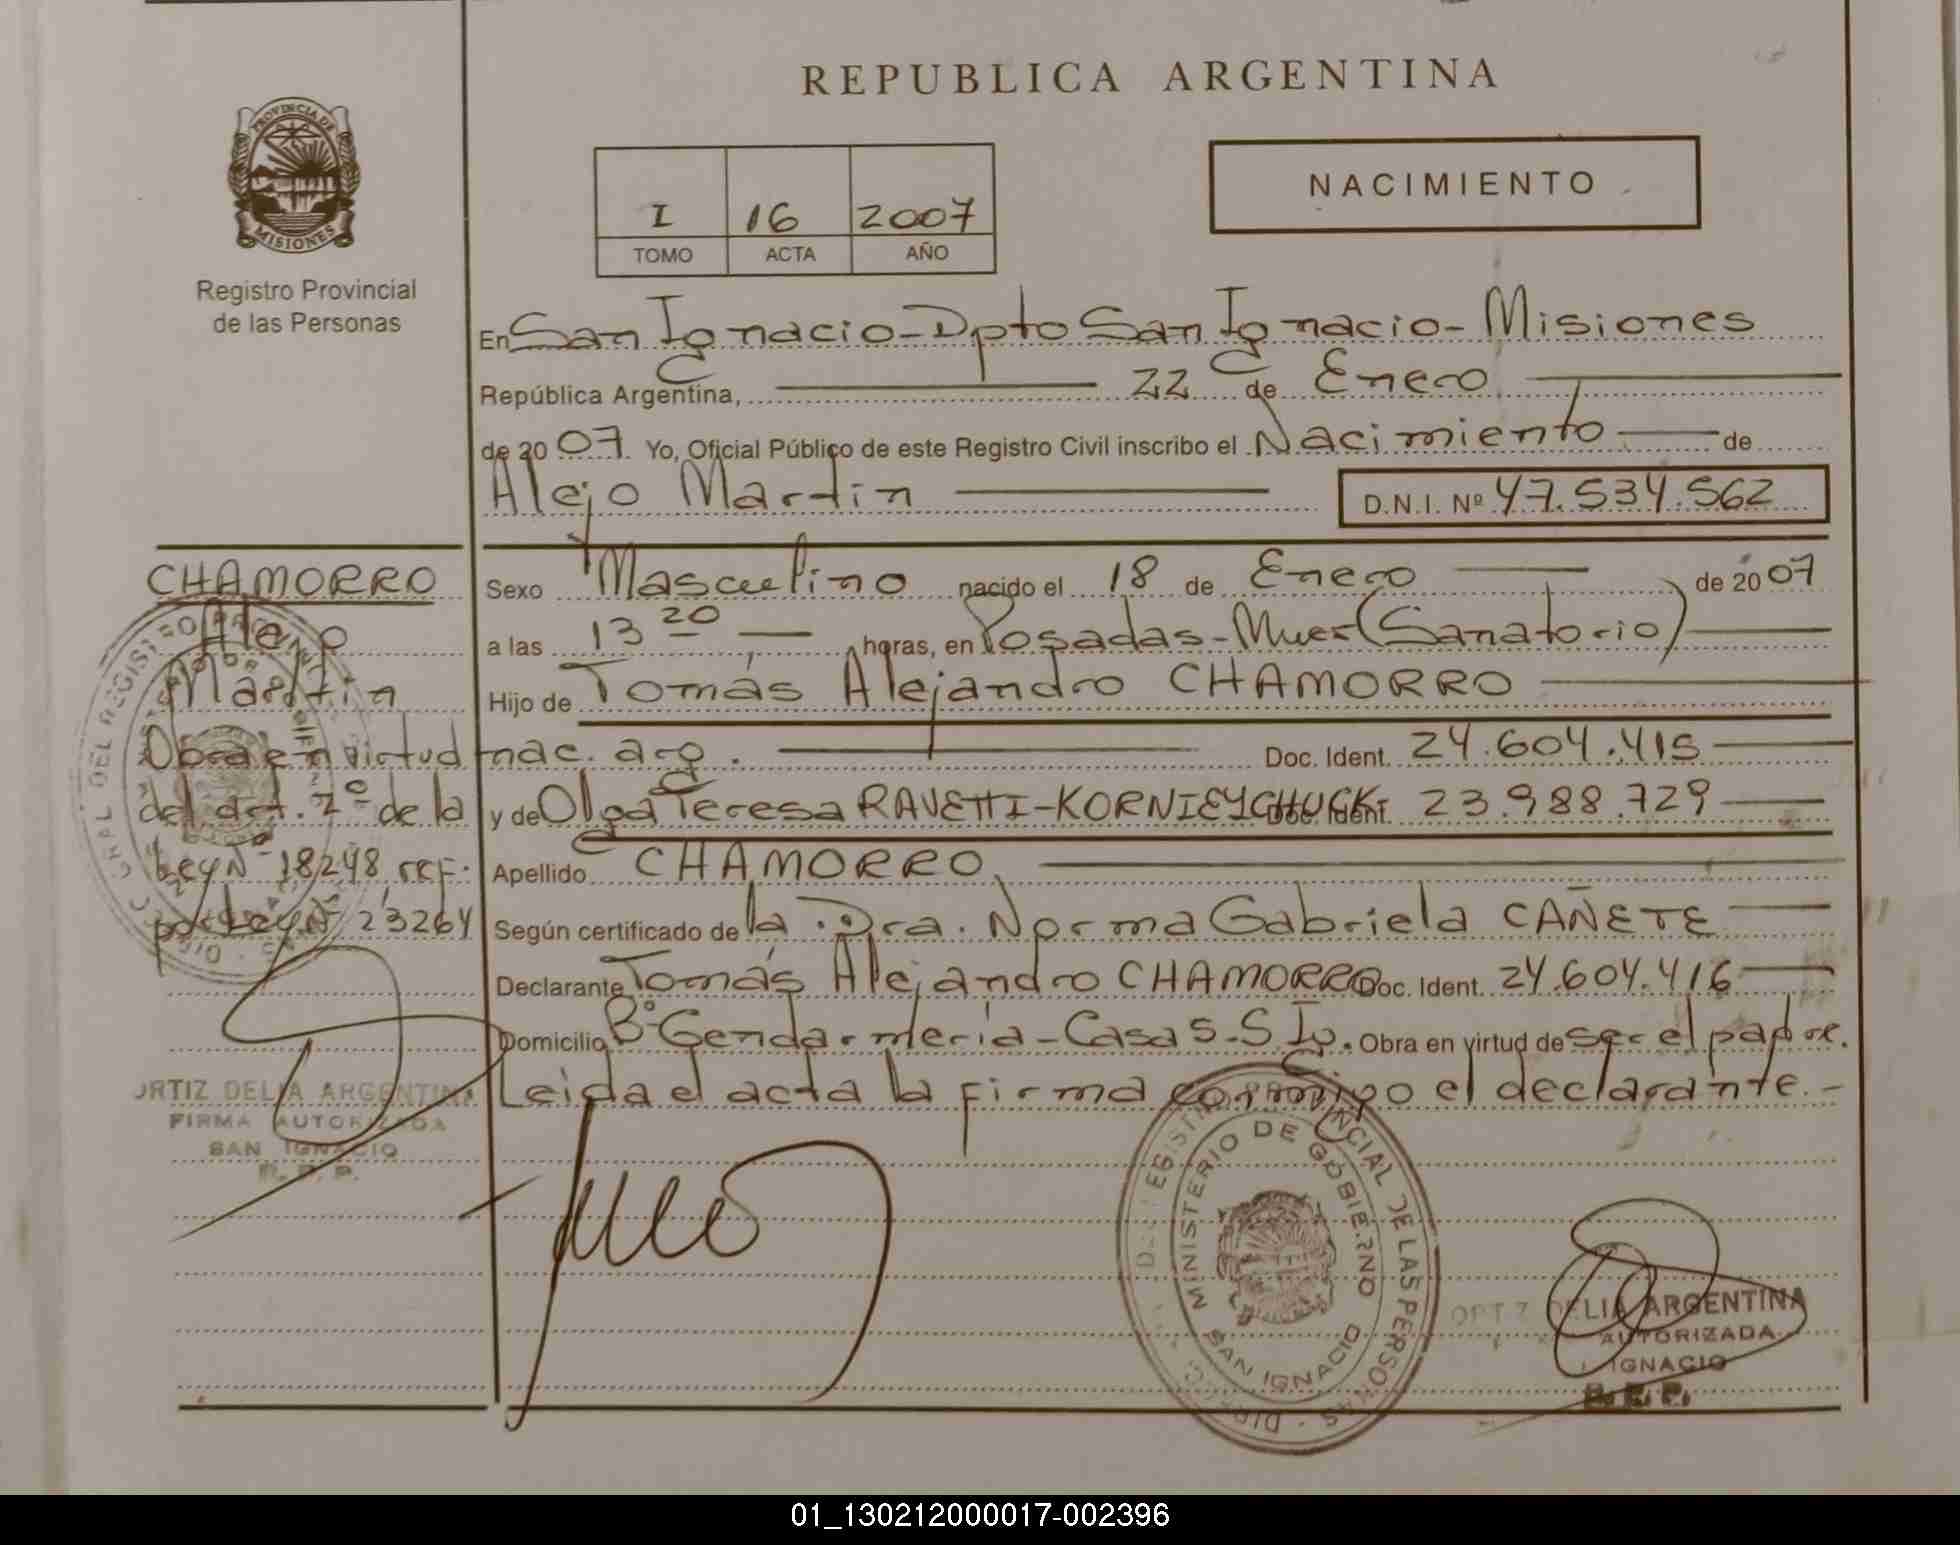 REPUBLICA ARGENTINA
PROVINCIA DE
MISIONES
Registro Provincial
de las Personas
I 16 2007
TOMO ACTA AÑO
NACIMIENTO
En San Ignacio - Dpto San Ignacio - Misiones
República Argentina, 22 de Enero
de 2007. Yo, Oficial Público de este Registro Civil inscribo el Nacimiento de
Alejo Martin D.N.I. Nº 47.534.562
Sexo Masculino nacido el 18 de Enero de 2007
a las 13 20 horas, en Posadas - Mnes (Sanatorio)
Hijo de Tomás Alejandro CHAMORRO
nac. arg. Doc. Ident. 24.604.415
y de Olga Teresa RAVETTI-KORNIEYCHUCK Doc. Ident. 23.988.729
Apellido CHAMORRO
Según certificado de la Dra. Norma Gabriela CAÑETE
Declarante Tomás Alejandro CHAMORRO Doc. Ident. 24.604.416
Domicilio Bº Gendarmeria - Casa 5 - S. Ig. Obra en virtud de ser el padre.
Leida el acta la firma conmigo el declarante. -
CHAMORRO
Alejo
Martin
Obra en virtud
del art. 2º de la
Ley Nº 18248 ref.
por Ley Nº 23264
ORTIZ DELIA ARGENTINA
FIRMA AUTORIZADA
SAN IGNACIO
R. P. P.
MINISTERIO DE GOBIERNO
SAN IGNACIO
DELIA ARGENTINA
AUTORIZADA
IGNACIO
01_130212000017-002396